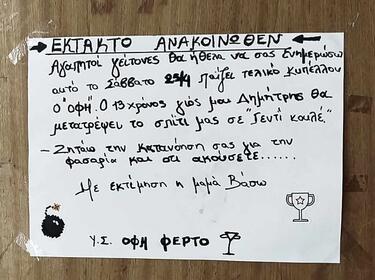 ΕΚΤΑΚΤΟ ΑΝΑΚΟΙΝΩΘΕΝ
Αγαπητοί γείτονες θα ήθελα να σας ενημερώσω
αυτό το Σάββατο 25/4 Παίζει τελικό Κυπέλλου
ο "ΟΦΗ". Ο 13χρονος γιός μου Δημήτρης θα
μετατρέψει το σπίτι μας σε "Γεντί κουλέ."
- Ζητάω την κατανόηση σας για την
φασαρία και ότι ακούσετε......
Με εκτίμηση η μαμά Βάσω
Υ.Σ. ΟΦΗ ΦΕΡΤΟ